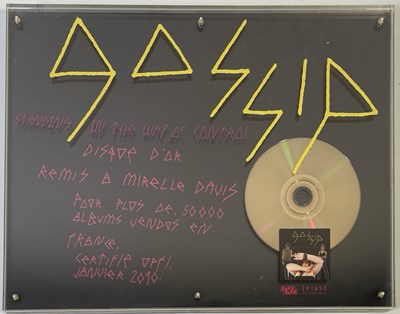 gossip
STANDING IN THE WAY OF CONTROL
DISQUE D'OR
REMIS A MIRELLE DAVIS
POUR PLUS DE 50000
ALBUMS VENDUS EN
FRANCE.
CERTIFIE OFFI.
JANVIER 2010.
gossip
[PIAS]